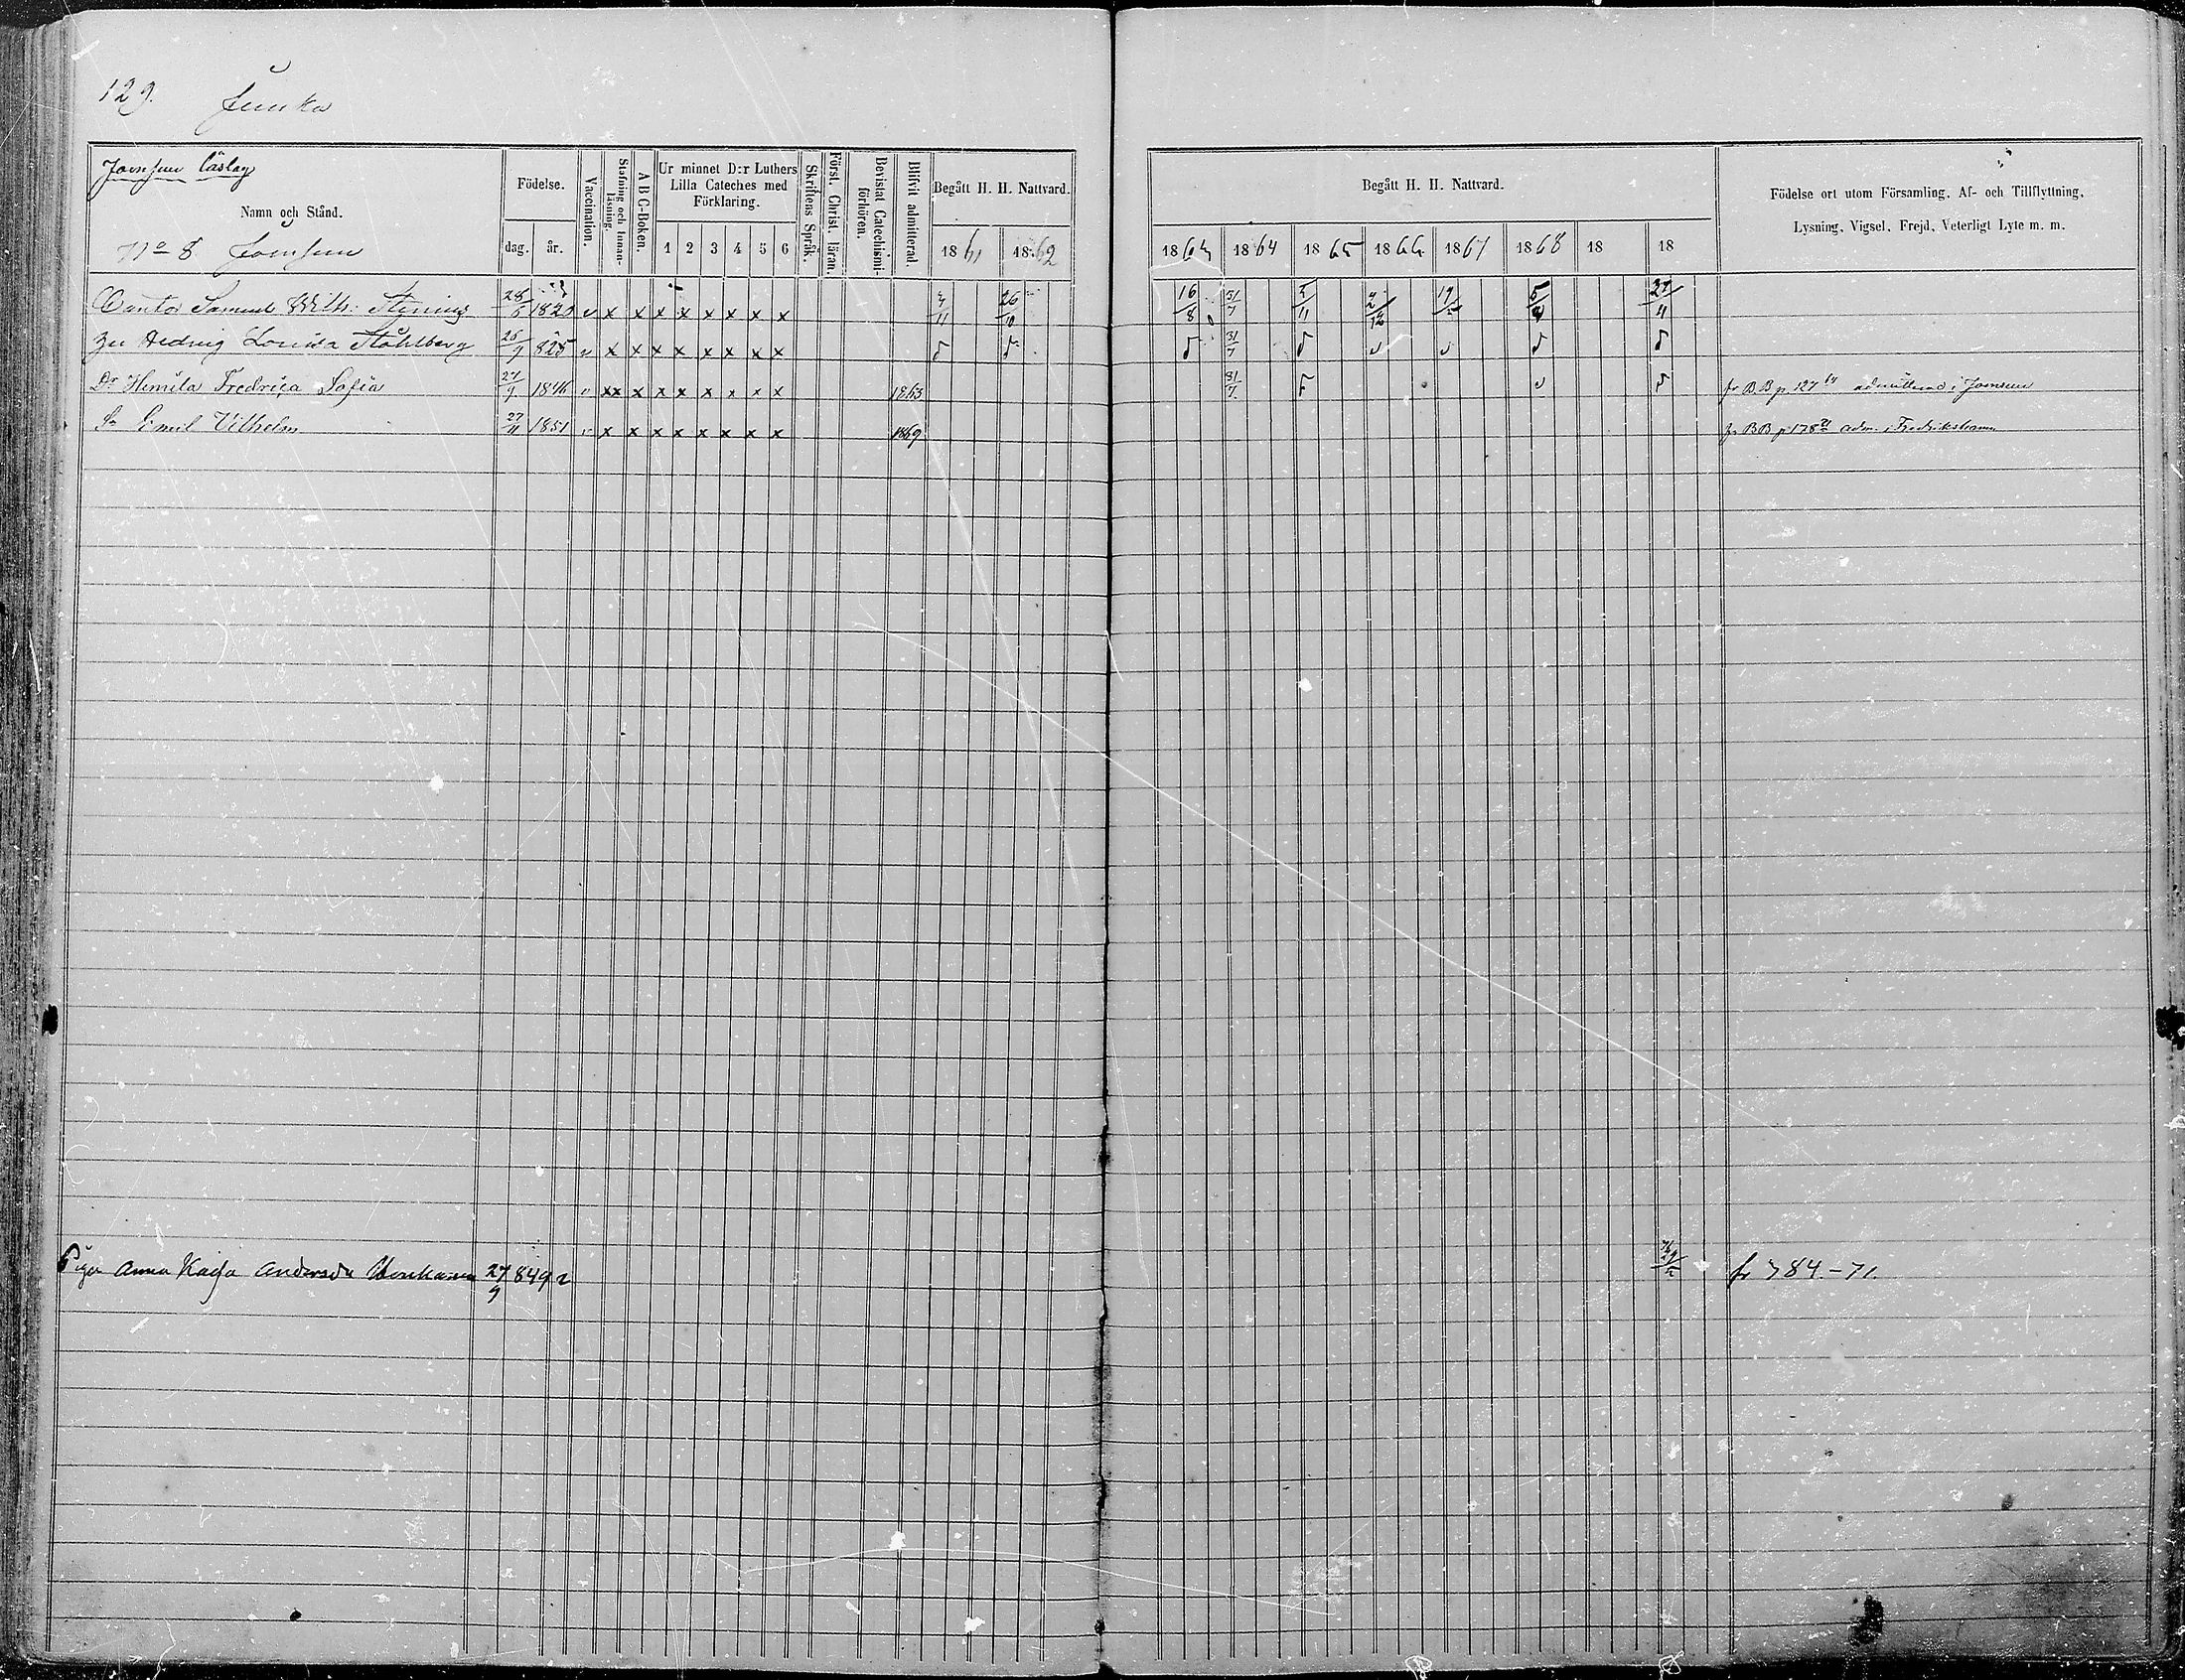 129. Junka
Jomsuu Läslag
Namn och Stånd.
No 8 Jomsuu
Födelse.
dag. år.
Vaccination.
Stafning och Innan-läsning.
A B C-Boken.
Ur minnet D:r Luthers Lilla Cateches med Förklaring.
1 2 3 4 5 6
Skriftens Språk.
Först. Christ. läran.
Bevistat Catechismi-förhören.
Blifvit admitterad.
Begått H. H. Nattvard.
1861 1862
Begått H. H. Nattvard.
1863 1864 1865 1866 1867 1868 18 18
Födelse ort utom Församling, Af- och Tillflyttning,
Lysning, Vigsel, Frejd, Veterligt Lyte m. m.
Cantor Samuel Wilh: 28/5 1820 v x x x x x x x x 26/10 16/8 31/7 5/11 2/12 5/4
Hedvig Lovisa Ståhlberg 26/9 825 v x x x x x x x x 31/7
Dr Hemila Fredrica Sofia 27/9 1846 v xx x x x x x x x 1863 31/7 fr B.B p. 127 admitterad i Jomsuu
Sn Emil Vilhelm 27/11 1851 v x x x x x x x x 1869 fr BB p 178 adm. i Fredrikshamn
Piga Anna Kaisa Andersdr 27/9 849 v fr 784-71.